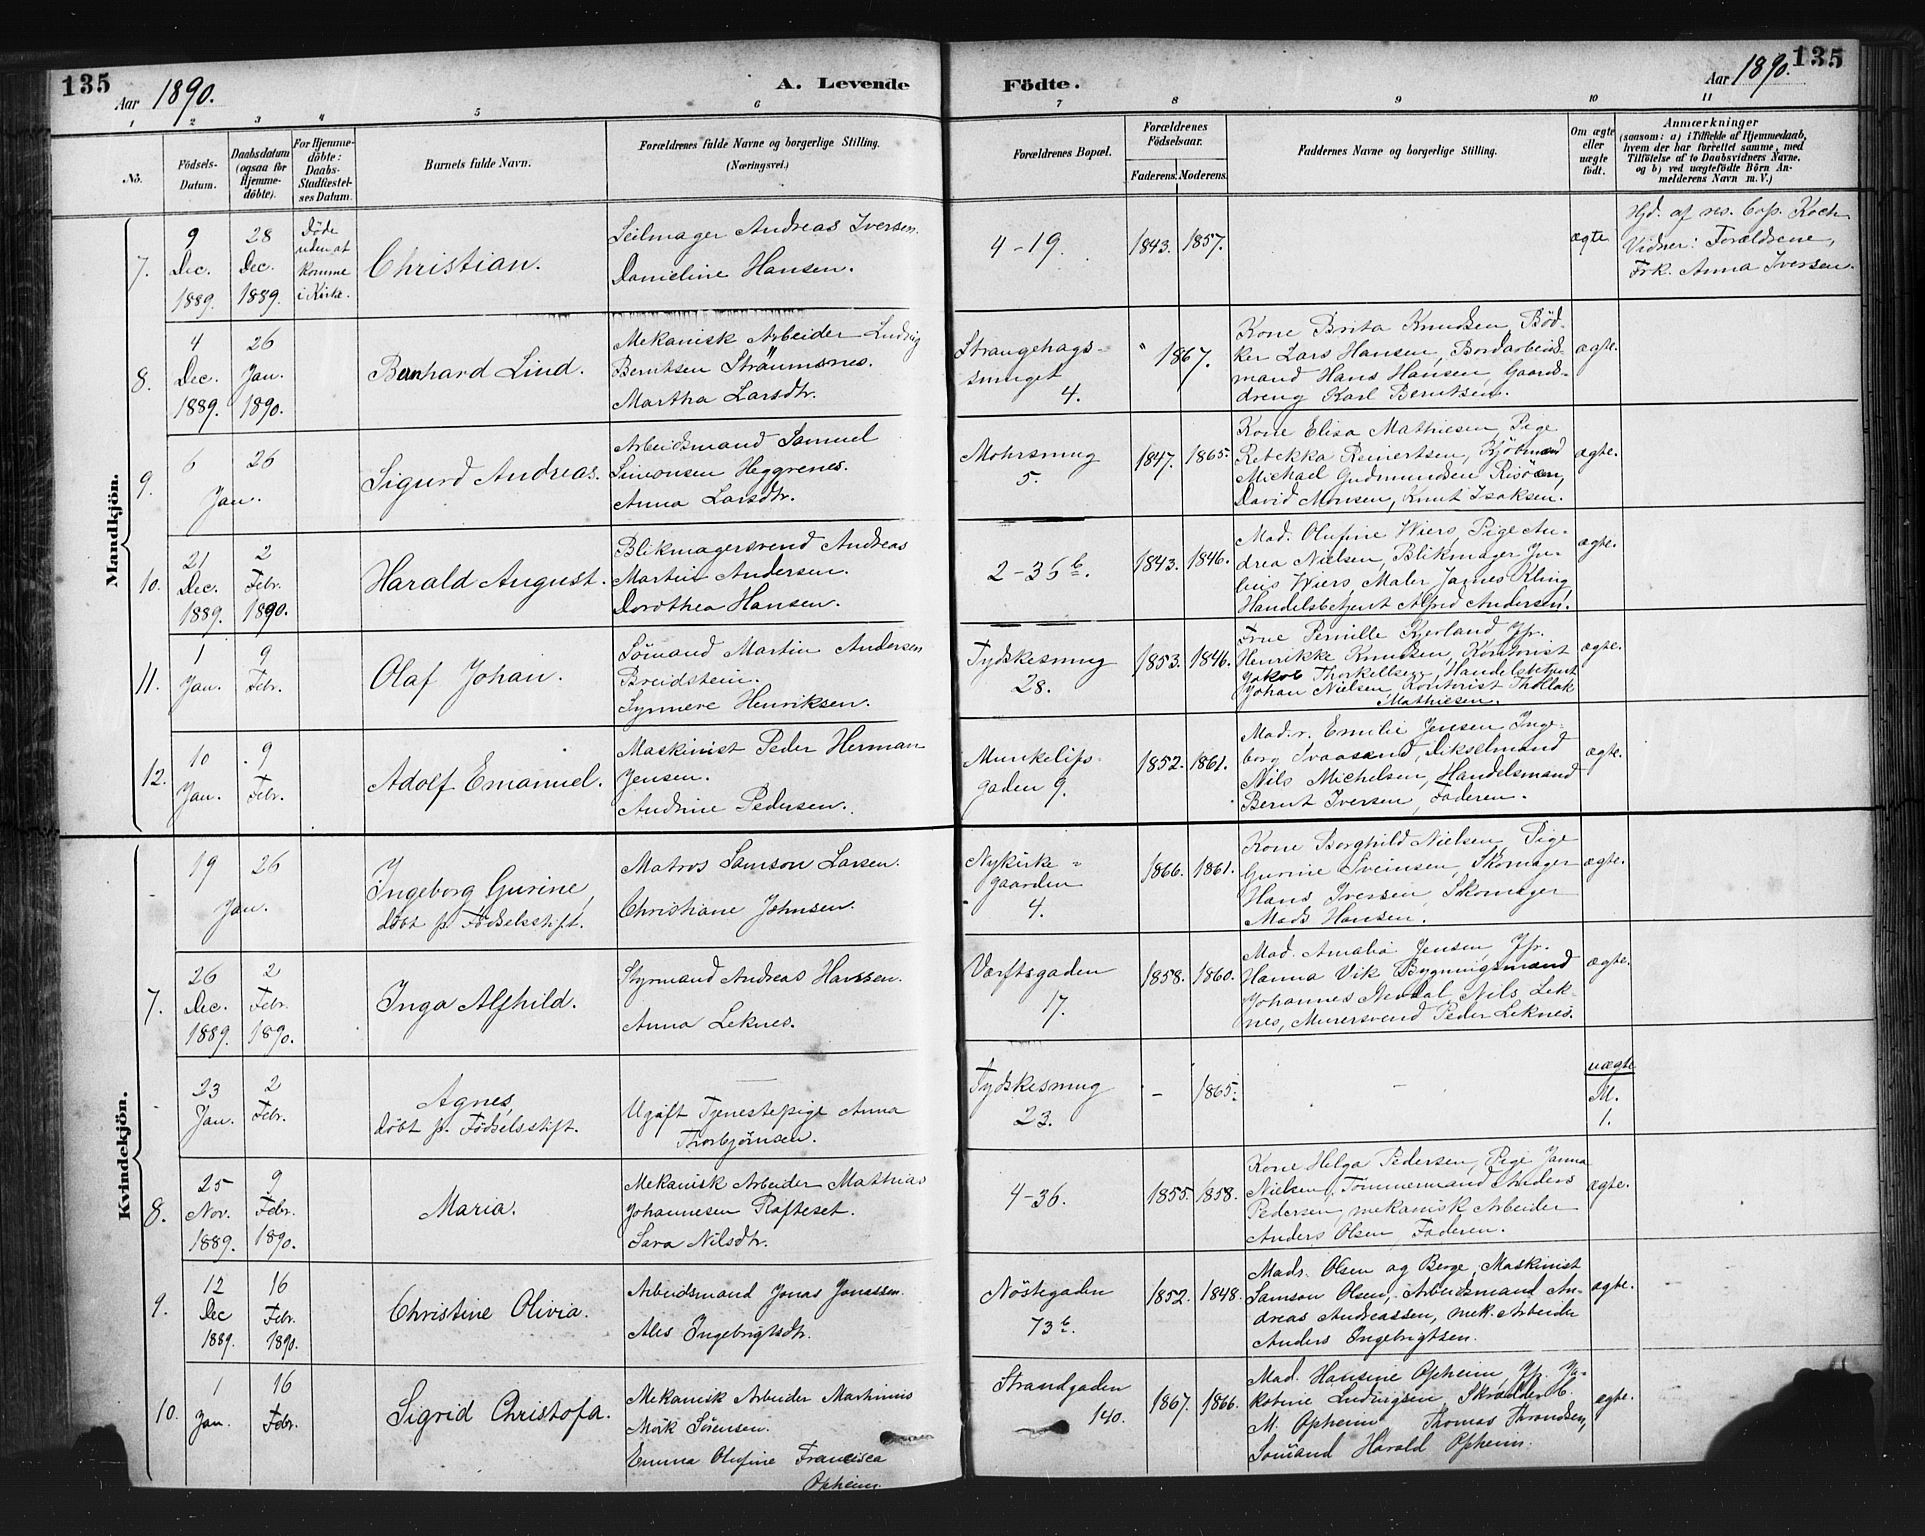 135
Aar 1890.
A. Levende
Födte.
Aar 1890.
135
1 2 3 4 5 6 7 8 9 10 11
No.
Födsels-
Datum.
Daabsdatum
(ogsaa for
Hjemme-
döbte).
For Hjemme-
döbte:
Daabs-
Stadfæstel-
ses Datum.
Barnets fulde Navn.
Forældrenes fulde Navne og borgerlige Stilling.
(Næringsvei.)
Forældrenes Bopæl.
Forældrenes
Födselsaar.
Faderens. Moderens.
Faddernes Navne og borgerlige Stilling.
Om ægte
eller
uægte
födt.
Anmærkninger
(saasom: a) i Tilfælde af Hjemmedaab,
hvem der har forrettet samme, med
Tilföielse af to Daabsvidners Navne.
og b) ved uægtefödte Börn An-
melderens Navn m. V.)
Mandkjön.
7.
9
Dec.
1889.
28
Dec.
1889.
Döde
uden at
komme
i Kirke.
Christian.
Seilmager Andreas Iversen.
Danieline Hansen.
4-19.
1843. 1857.
ægte
Hjd. af res. Cap. Koch
Vidner: Forældrene,
Frk. Anna Iversen.
8.
4
Dec.
1889.
26
Jan.
1890.
Bernhard Lind.
Mekanisk Arbeider Ludvig
Berntsen Straumsnes.
Martha Larsdtr.
Strangehags-
smuget
4.
" 1867.
Kone Brita Knudsen, Bød-
ker Lars Hansen, Bordarbeids-
mand Hans Hansen, Gaards-
dreng Karl Berntsen.
ægte.
9.
6 26
Jan.
Sigurd Andreas.
Arbeidsmand Samuel
Simonsen Heggrenes.
Anna Larsdtr.
Mohrsmug
5.
1847. 1865.
Kone Elisa Mathiesen, Pige
Rebekka Reinertsen, Kjöbmand
Michael Gudmundsen Risöen,
David Monsen, Knut Isaksen.
ægte.
10.
21
Dec.
1889.
2
Febr.
1890.
Harald August.
Blikmagersvend Andreas
Martin Andersen.
Dorothea Hansen.
2-36b.
1843. 1846.
Mad. Olufine Wiers, Pige An-
drea Nielsen, Blikmager Ju-
lius Wiers, Maler James Kling
Handelsbetjent Alfred Andersen.
ægte.
11.
1
Jan.
9
Febr.
Olaf Johan.
Sömand Martin Andersen
Breidstein.
Synneve Henriksen.
Tydskesmug
28.
1853. 1846.
Frue Pernille Kjerland, Jfr.
Henrikke Knudsen, Kontorist
Jakob Thorkelsen, Handelsbetjent
Johan Nielsen, Kontorist Thollak
Mathiesen.
ægte.
12.
10
Jan.
9
Febr.
Adolf Emanuel.
Maskinist Peder Herman
Jensen.
Andrine Pedersen.
Munkelivs-
gaden 9.
1852. 1861.
Mad.r. Emilie Jensen, Inge-
borg Svaasand, Dikselmand
Nils Michelsen, Handelsmand
Bernt Iversen, Faderen.
ægte.
Kvindekjön.
19 26
Jan.
Ingeborg Gurine,
döbt p. Fødselsstift.
Matros Samson Larsen.
Christiane Johnsen.
Nykirke-
gaarden
4.
1866. 1861.
Kone Borghild Nielsen, Pige
Gurine Sveinsen, Skomager
Hans Iversen, Skomager
Mads Hansen.
ægte.
7.
26
Dec.
1889.
2
Febr.
1890.
Inga Alfhild.
Styrmand Andreas Hanssen.
Anna Leknes.
Værftsgaden
17.
1858. 1860.
Mad. Amalia Jensen, Jfr.
Hanna Vik, Bygningsmand
Johannes Nerdal, Nils Lek-
nes, Murersvend Peder Leknes.
ægte.
23
Jan.
2
Febr.
Agnes,
döbt p. Fødselsstift.
Ugift Tjenestepige Anna
Thorbjörnsen.
Tydskesmug
23.
- 1865.
uægte
M.
1.
8.
25
Nov.
1889.
9
Febr.
1890.
Maria.
Mekanisk Arbeider Mathias
Johannesen Røfteset.
Sara Nilsdtr.
4-36.
1855. 1858.
Kone Helga Pedersen, Pige Janna
Nielsen, Tömmermand Anders
Pedersen, mekanisk Arbeider
Anders Olsen, Faderen.
ægte.
9.
12
Dec
1889.
16
Febr.
1890.
Christine Olivia.
Arbeidsmand Jonas Jonassen.
Ales Ingebrigtsdtr.
Nöstegaden
73b.
1852. 1848.
Madr. Olsen og Berge, Maskinist
Samson Olsen, Arbeidsmand An-
dreas Andreassen, mek. Arbeider
Anders Ingebrigtsen.
ægte.
10.
1
Jan.
16
Febr.
Sigrid Christofa.
Mekanisk Arbeider Martinus
Mörk Sörensen.
Emma Olufine Francisca
Opheim.
Strandgaden
140.
1867. 1866.
Mad. Hansine Opheim, Jfr. Ja-
kobine Ludvigsen, Skrædder C.
M. Opheim Thomas Throndsen,
Sömand Harald Opheim.
ægte.